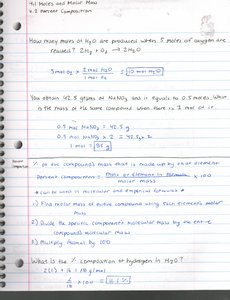 4.1 Moles and Molar Mass
4.2 Percent Composition
How many moles of H₂O are produced when 5 moles of oxygen are
reacted? 2H₂ + O₂ → 2H₂O
5 mol O₂ × 2 mol H₂O / 1 mol O₂ = 10 mol H₂O
You obtain 42.5 grams of NaNO₃ and it equals to 0.5 moles. What
is the mass of the same compound when there is 1 mol of it
0.5 mol NaNO₃ = 42.5 g
0.5 mol NaNO₃ × 2 = 42.5 × 2
1 mol = 85 g
Percent
Composition
% of the compound's mass that is made up by each element
Percent composition = Mass of Element in Formula / molar mass × 100
* can be used in molecular and empirical formulas *
1) Find molar mass of entire compound using each elements molar
mass
2) Divide the specific component's molecular mass by the entire
compound's molecular mass
3) Multiply decimal by 100
What is the % composition of hydrogen in H₂O?
2(1) + 16 = 18 g/mol
2/18 × 100 = 11.1%